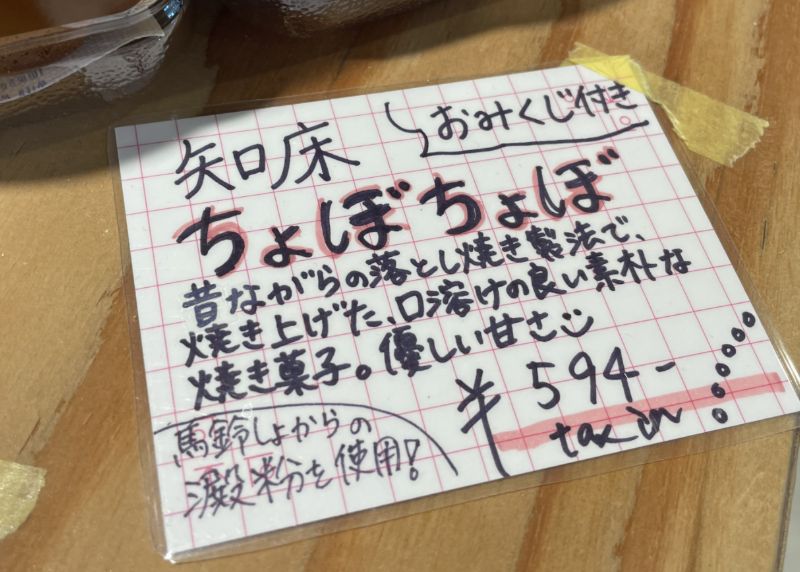 おみくじ付き
知床
ちょぼちょぼ
昔ながらの落とし焼き製法で、
焼き上げた、口溶けの良い素朴な
焼き菓子。優しい甘さ
¥594-
tax in
馬鈴しょからの
澱粉を使用!